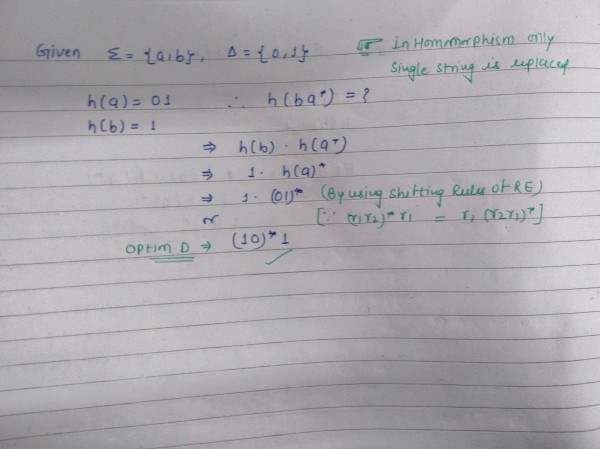 Given Σ = {a,b}, Δ = {0,1}
In Homomorphism only
Single string is replaced
h(a) = 01 ∴ h(ba*) = ?
h(b) = 1
⇒ h(b) · h(a*)
⇒ 1 · h(a)*
⇒ 1 · (01)* (By using Shifting Rules of RE)
or [∵ (r₁r₂)* r₁ = r₁ (r₂r₁)*]
Option D ⇒ (10)* 1